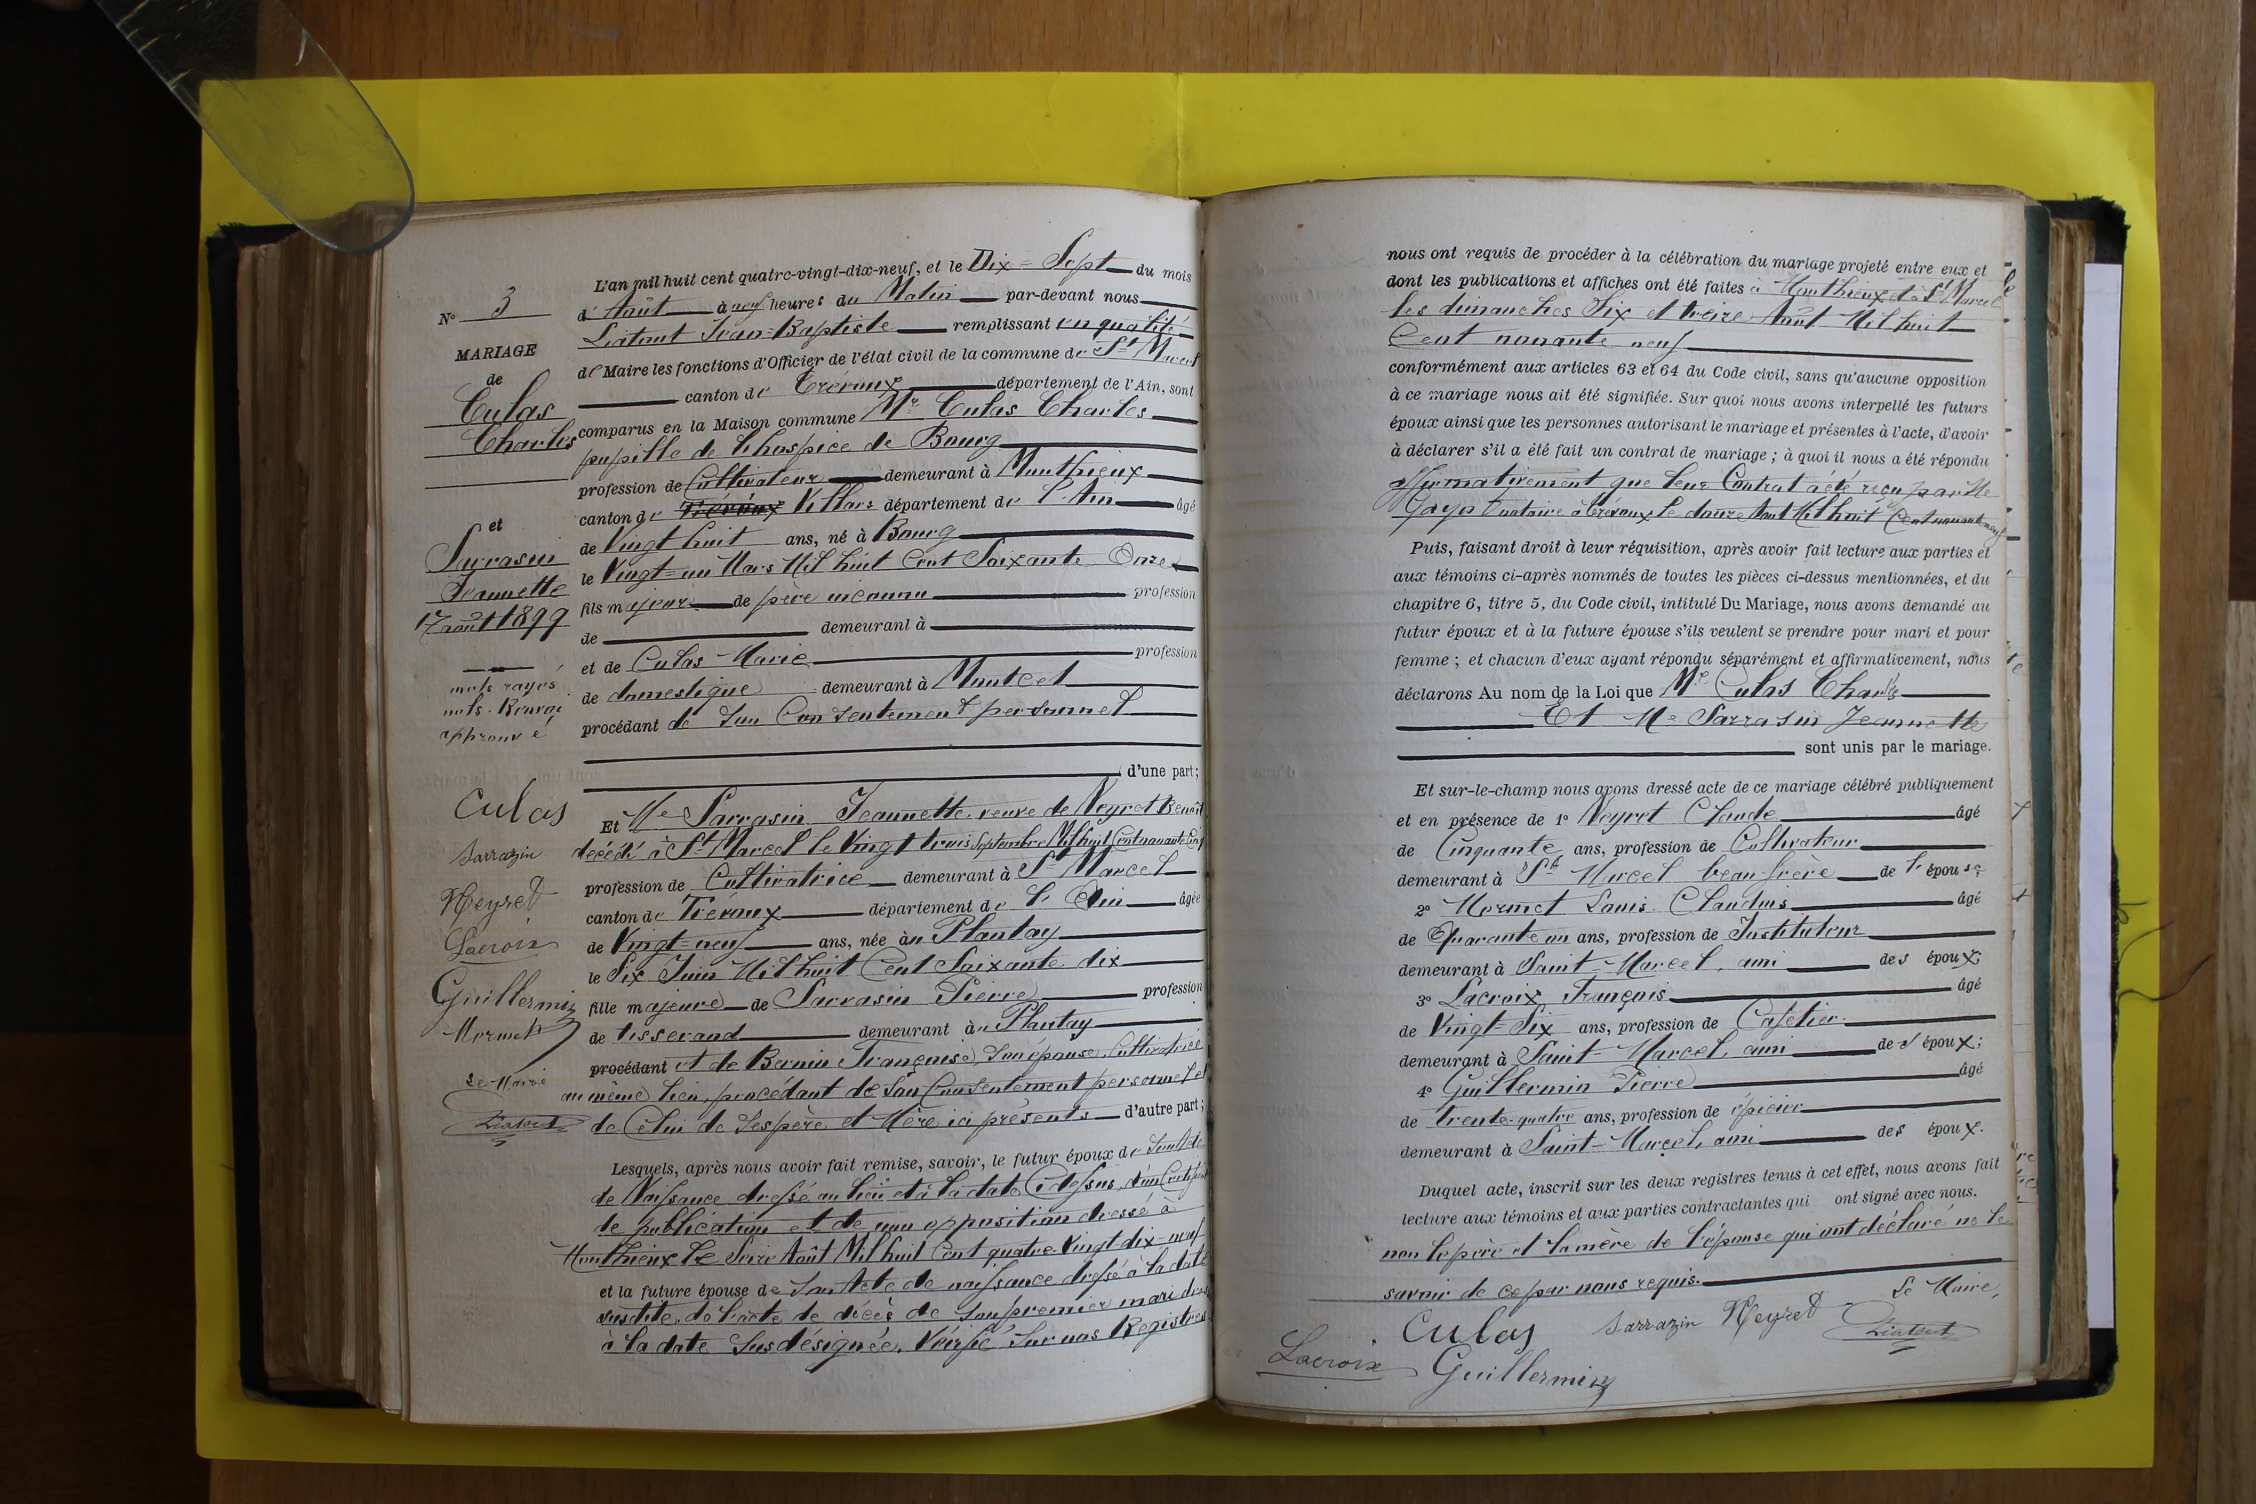 N° 3
MARIAGE
de
Culas
Charles
et
Sarrasin
Jeannette
17 août 1899
mots rayés
mots Renvoi
approuvé
Culas
Sarrazin
Veyret
Lacroix
Guillermin
Mormet
Le Maire
Liatout
L'an mil huit cent quatre-vingt-dix-neuf, et le Dix-Sept du mois
d'Août à neuf heures du Matin par-devant nous
Liatout Jean-Baptiste remplissant en qualité
de Maire les fonctions d'Officier de l'état civil de la commune de St Marcel
canton de Trévoux département de l'Ain, sont
comparus en la Maison commune Mr Culas Charles
pupille de l'hospice de Bourg
profession de Cultivateur demeurant à Monthieux
canton de Trévoux Villars département de l'Ain âgé
de Vingt huit ans, né à Bourg
le Vingt-un Mars Mil huit Cent Soixante Onze
fils majeur de père inconnu profession
de demeurant à
et de Culas Marie profession
de domestique demeurant à Montcet
procédant de son Consentement personnel
d'une part;
Et Me Sarrasin Jeannette veuve de Veyret Benoît
décédé à St Marcel le Vingt trois Septembre Mil huit Cent nonante Cinq
profession de Cultivatrice demeurant à St Marcel
canton de Trévoux département de l'Ain âgée
de Vingt-neuf ans, née au Plantay
le Six Juin Mil huit Cent Soixante dix
fille majeure de Sarrasin Pierre profession
de tisserand demeurant au Plantay
procédant et de Bernin Françoise, son épouse, Cultivatrice
au même lieu, procédant de son Consentement personnel et
de Celui de ses père et Mère ici présents d'autre part;
Lesquels, après nous avoir fait remise, savoir, le futur époux de Son Acte
de Naissance dressé au lieu et à la date Ci-dessus, d'un Certificat
de publication et de non opposition dressé à
Monthieux le Seize Août Mil huit Cent quatre-Vingt dix-neuf
et la future épouse de Son Acte de naissance dressé à la date
susdite, de l'acte de décès de son premier mari dressé
à la date Susdésignée, Vérifié Sur nos Registres
nous ont requis de procéder à la célébration du mariage projeté entre eux et
dont les publications et affiches ont été faites à Monthieux et à St Marcel
les dimanches Six et treize Août Mil huit
Cent nonante neuf
conformément aux articles 63 et 64 du Code civil, sans qu'aucune opposition
à ce mariage nous ait été signifiée. Sur quoi nous avons interpellé les futurs
époux ainsi que les personnes autorisant le mariage et présentes à l'acte, d'avoir
à déclarer s'il a été fait un contrat de mariage; à quoi il nous a été répondu
affirmativement que leur Contrat a été reçu par Me
notaire à Trévoux le douze Août Mil huit Cent nonante neuf
Puis, faisant droit à leur réquisition, après avoir fait lecture aux parties et
aux témoins ci-après nommés de toutes les pièces ci-dessus mentionnées, et du
chapitre 6, titre 5, du Code civil, intitulé Du Mariage, nous avons demandé au
futur époux et à la future épouse s'ils veulent se prendre pour mari et pour
femme; et chacun d'eux ayant répondu séparément et affirmativement, nous
déclarons Au nom de la Loi que Mr Culas Charles
Et Me Sarrasin Jeannette
sont unis par le mariage.
Et sur-le-champ nous avons dressé acte de ce mariage célébré publiquement
et en présence de 1° Veyret Claude âgé
de Cinquante ans, profession de Cultivateur
demeurant à St Marcel beau-frère de l'épouse;
2° Mormet Louis Claudius âgé
de Quarante un ans, profession de Instituteur
demeurant à Saint-Marcel, ami des époux;
3° Lacroix François âgé
de Vingt-Six ans, profession de Cafetier
demeurant à Saint-Marcel, ami des époux;
4° Guillermin Pierre âgé
de trente-quatre ans, profession de épicier
demeurant à Saint-Marcel, ami des époux.
Duquel acte, inscrit sur les deux registres tenus à cet effet, nous avons fait
lecture aux témoins et aux parties contractantes qui ont signé avec nous.
non le père et la mère de l'épouse qui ont déclaré ne le
savoir de ce par nous requis.
Le Maire,
Culas Sarrazin Veyret Liatout
Lacroix Guillermin